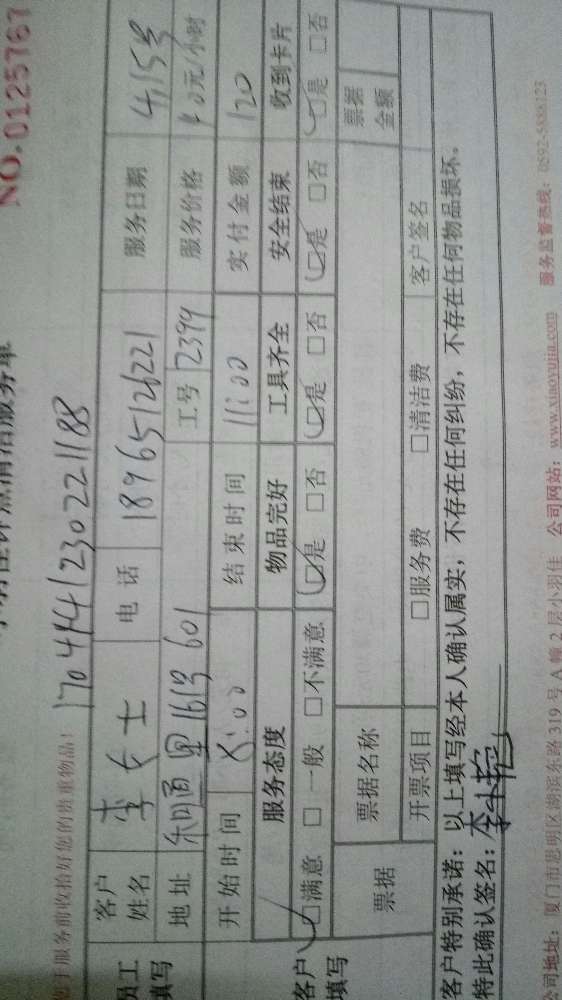 NO.0125767
1704141230221188
于服务前收拾好您的贵重物品!
员工填写
客户姓名 李女士 电话 18965126221 服务日期 4.15号
地址 161号 601 工号 2399 服务价格 40元/小时
开始时间 8:00 结束时间 11:00 实付金额 120
客户填写
服务态度 物品完好 工具齐全 安全结束 收到卡片
□满意 □一般 □不满意 □是 □否 □是 □否 □是 □否 □是 □否
票据 票据名称 票据金额
开票项目 □服务费 □清洁费 客户签名
客户特别承诺:以上填写经本人确认属实,不存在任何纠纷,不存在任何物品损坏。
特此确认签名:
公司地址:厦门市思明区湖滨东路319号A幢2层小羽佳 公司网站:www.xiaoyujia.com 服务监督热线:0592-5888123